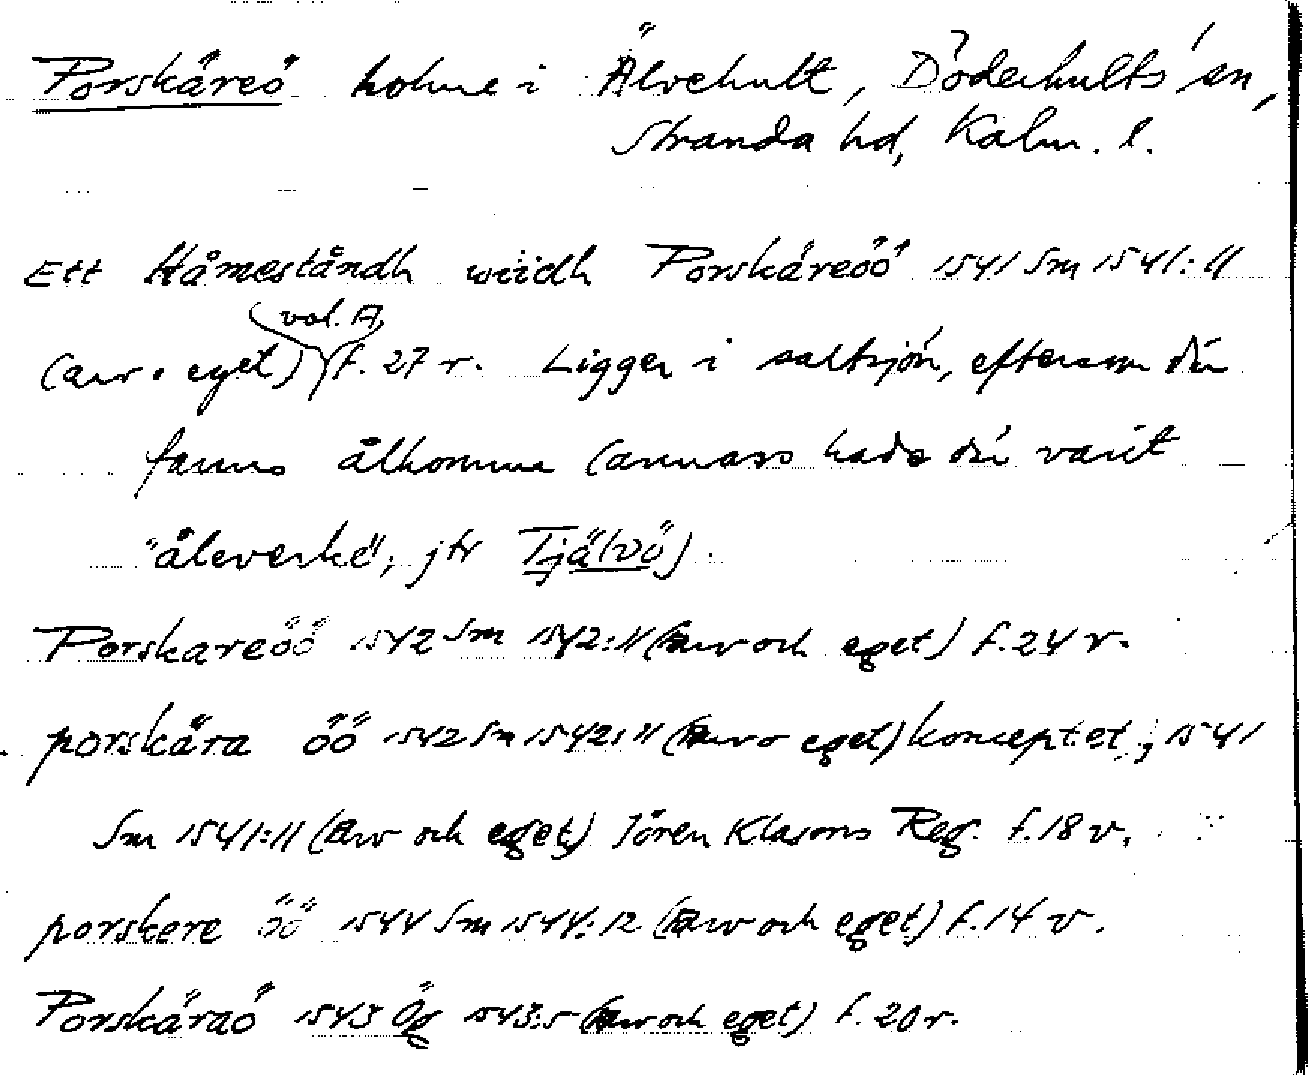 Porskäreö holme i Älvehult, Döderhults sn,
Stranda hd, Kalm. l.
Ett Håmeståndh wiidh Porskäreöö 1541 Sm 1541:11
vol. A,
(arv o eget) f. 27 r. Ligger i saltsjön, eftersom där
fanns ålhomma (annars hade där varit
"åleverke", jfr Tjälvö).
Porskareöö 1542 Sm 1542:11 (arv och eget) f. 24 v.
porskära öö 1542 Sm 1542:11 (arv o eget) konceptet; 1541
Sm 1541:11 (arv och eget) Jören Klasons Reg. f. 18 v.
porskere öö 1544 Sm 1544:12 (arv och eget) f. 14 v.
Porskäraö 1543 Ög 1543:5 (arv och eget) f. 20 r.